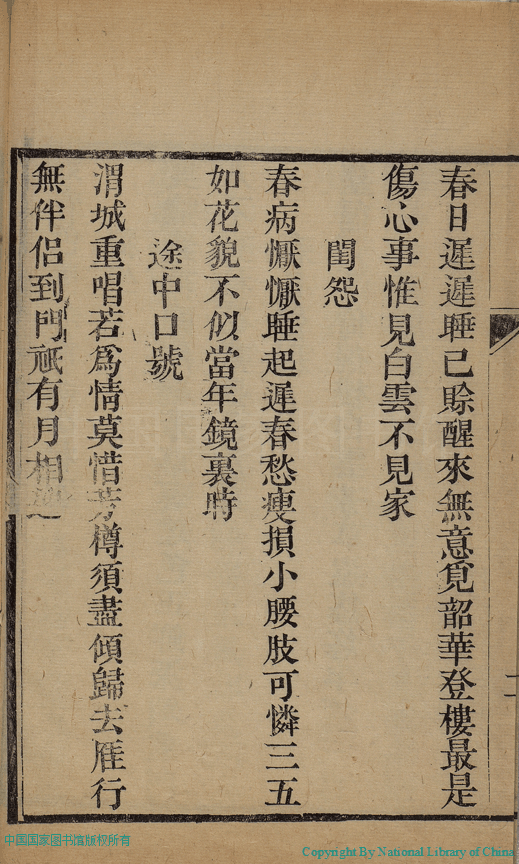 春日遲遲睡已賒醒來無意覓韶華登樓最是
傷心事惟見白雲不見家
閨怨
春病懨懨睡起遲春愁瘦損小腰肢可憐三五
如花貌不似當年鏡裏時
途中口號
渭城重唱若為情莫惜芳樽須盡傾歸去雁行
無伴侶到門祇有月相
中国国家图书馆版权所有
Copyright By National Library of China